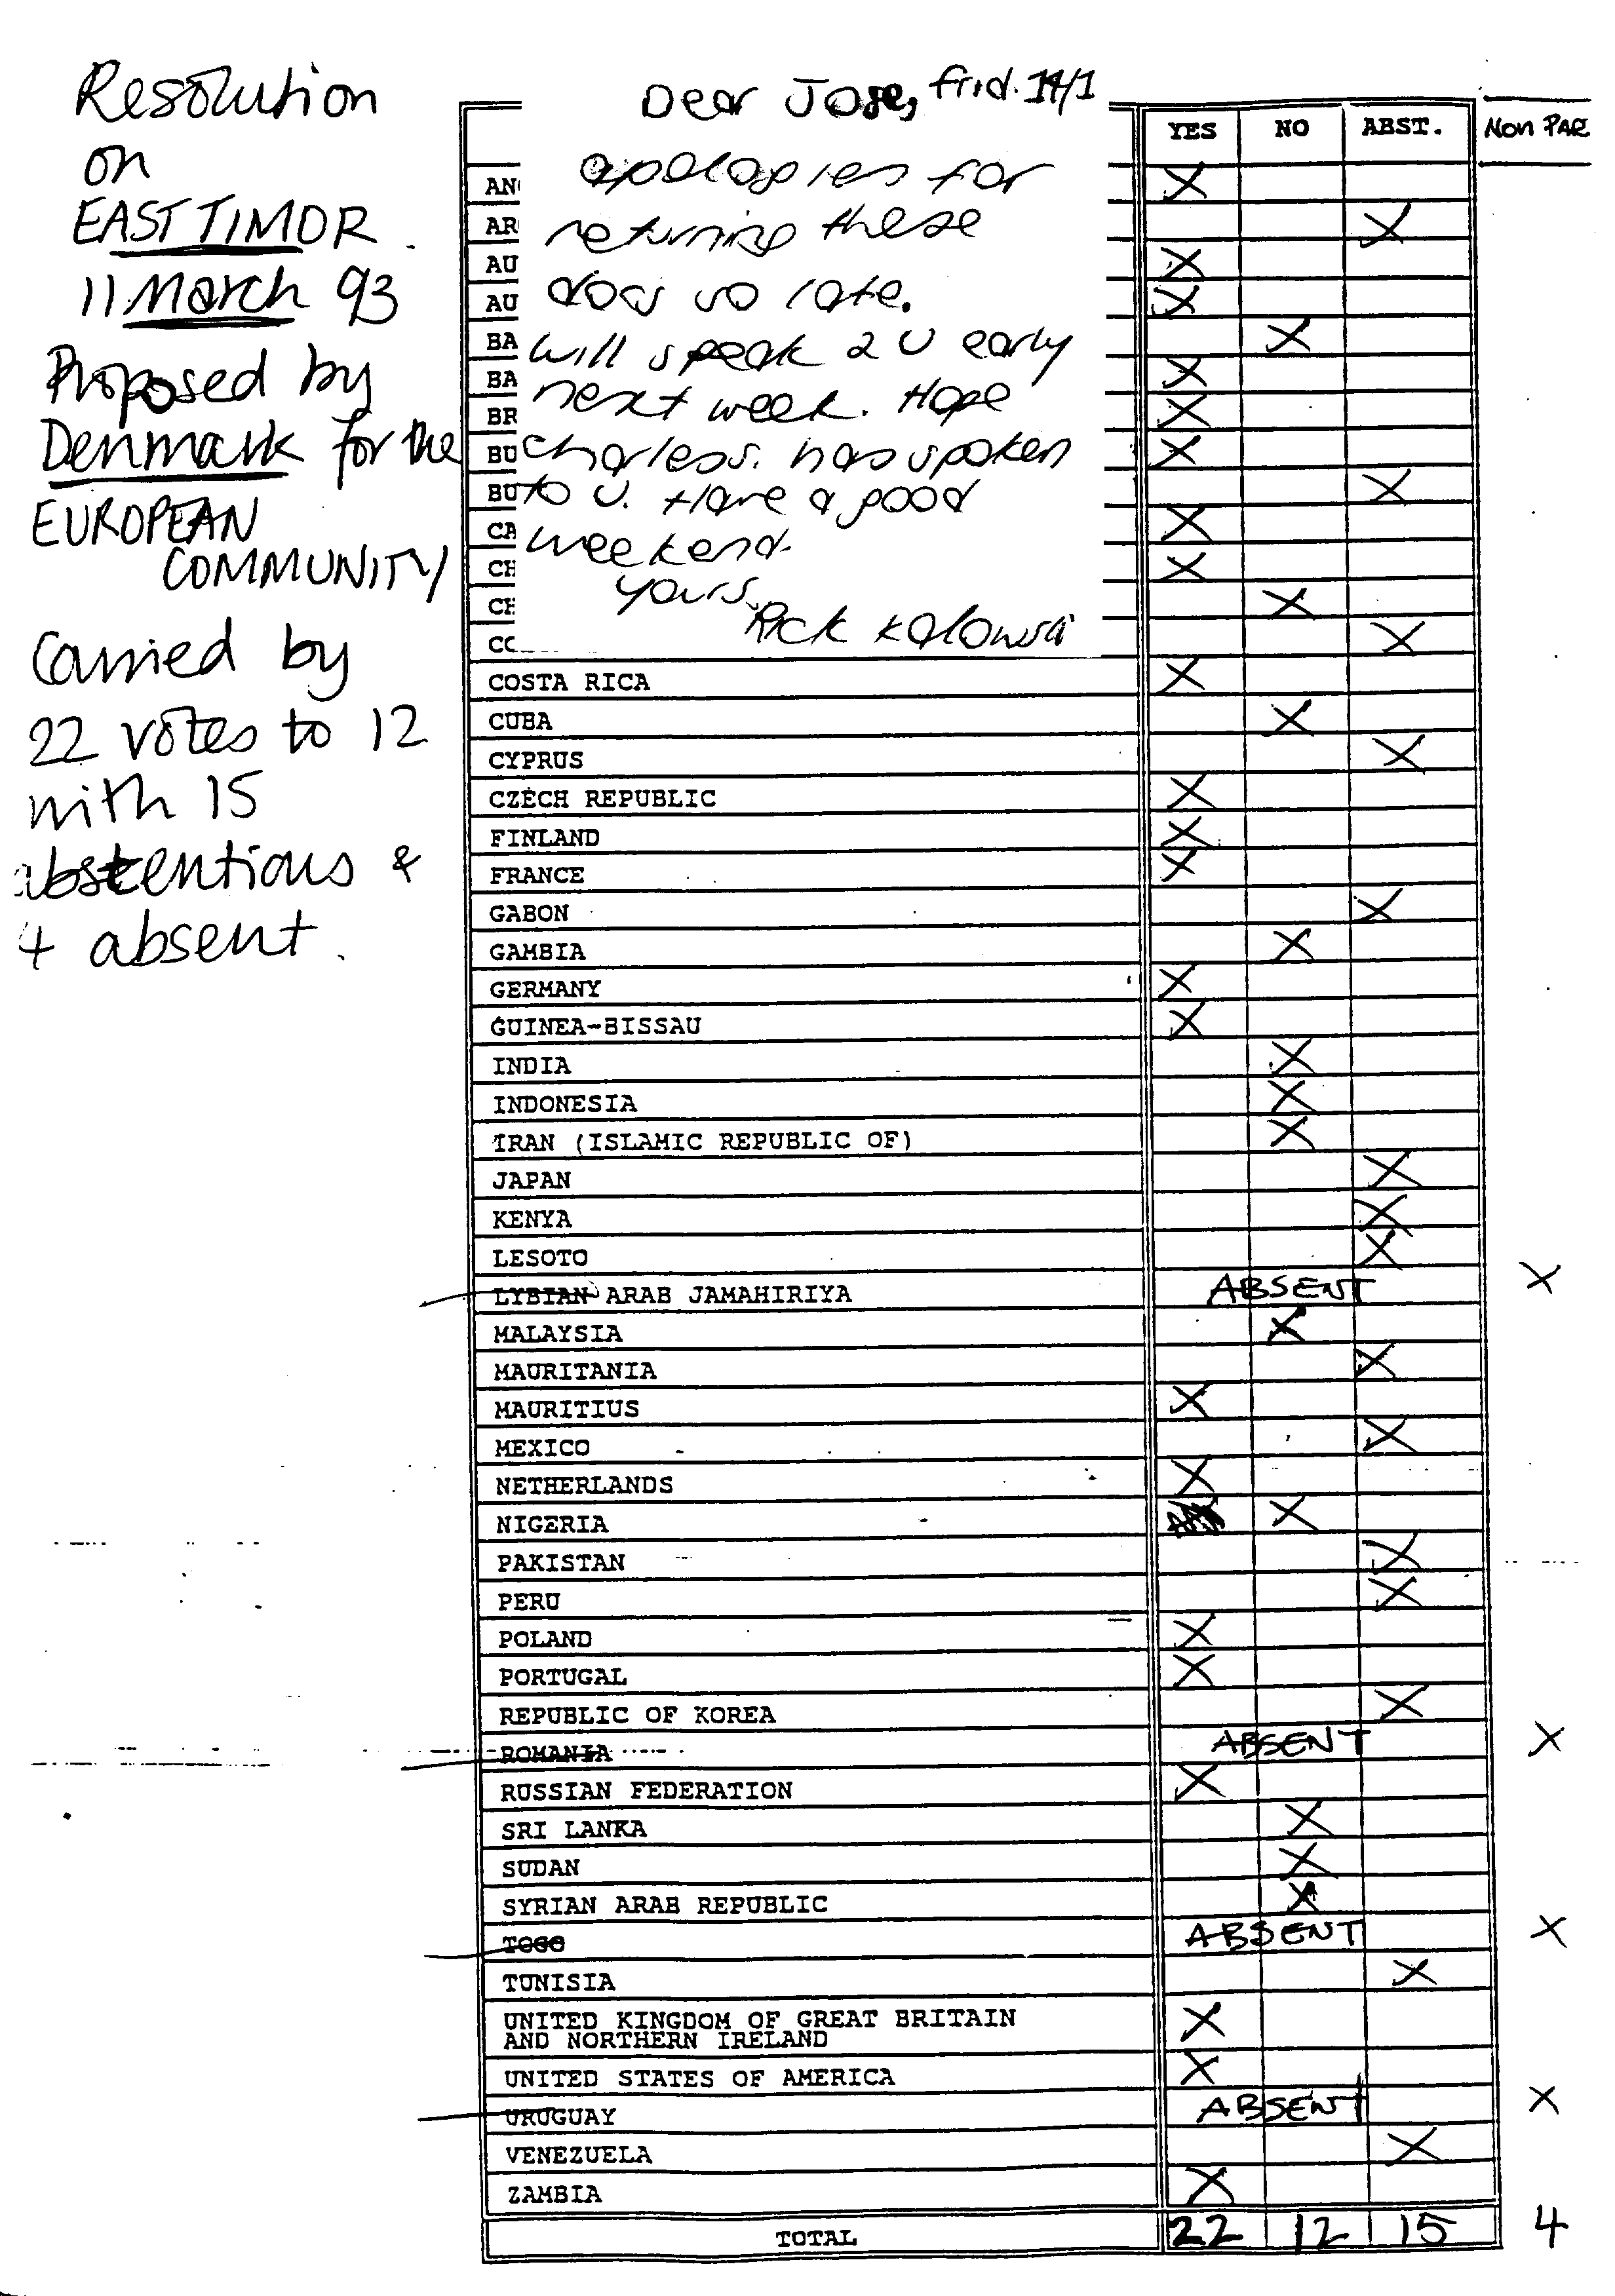 Resolution
on
EAST TIMOR
11 March 93
Proposed by
Denmark for the
EUROPEAN
COMMUNITY
Carried by
22 votes to 12
with 15
abstentions &
4 absent.
Dear Jose, frid. 14/1
apologies for
returning these
docs so late.
will speak 2 U early
next week. Hope
Charles S. has spoken
to U. Have a good
weekend.
yours,
YES NO ABST. NON PAR
AN X
AR X
AU X
AU X
BA X
BA X
BR X
BU X
BU X
CA X
CH X
CH X
CO X
COSTA RICA X
CUBA X
CYPRUS X
CZECH REPUBLIC X
FINLAND X
FRANCE X
GABON X
GAMBIA X
GERMANY X
GUINEA-BISSAU X
INDIA X
INDONESIA X
IRAN (ISLAMIC REPUBLIC OF) X
JAPAN X
KENYA X
LESOTO X
LYBIAN ARAB JAMAHIRIYA ABSENT X
MALAYSIA X
MAURITANIA X
MAURITIUS X
MEXICO X
NETHERLANDS X
NIGERIA X
PAKISTAN X
PERU X
POLAND X
PORTUGAL X
REPUBLIC OF KOREA X
ROMANIA ABSENT X
RUSSIAN FEDERATION X
SRI LANKA X
SUDAN X
SYRIAN ARAB REPUBLIC X
TOGO ABSENT X
TUNISIA X
UNITED KINGDOM OF GREAT BRITAIN
AND NORTHERN IRELAND X
UNITED STATES OF AMERICA X
URUGUAY ABSENT X
VENEZUELA X
ZAMBIA X
TOTAL 22 12 15 4